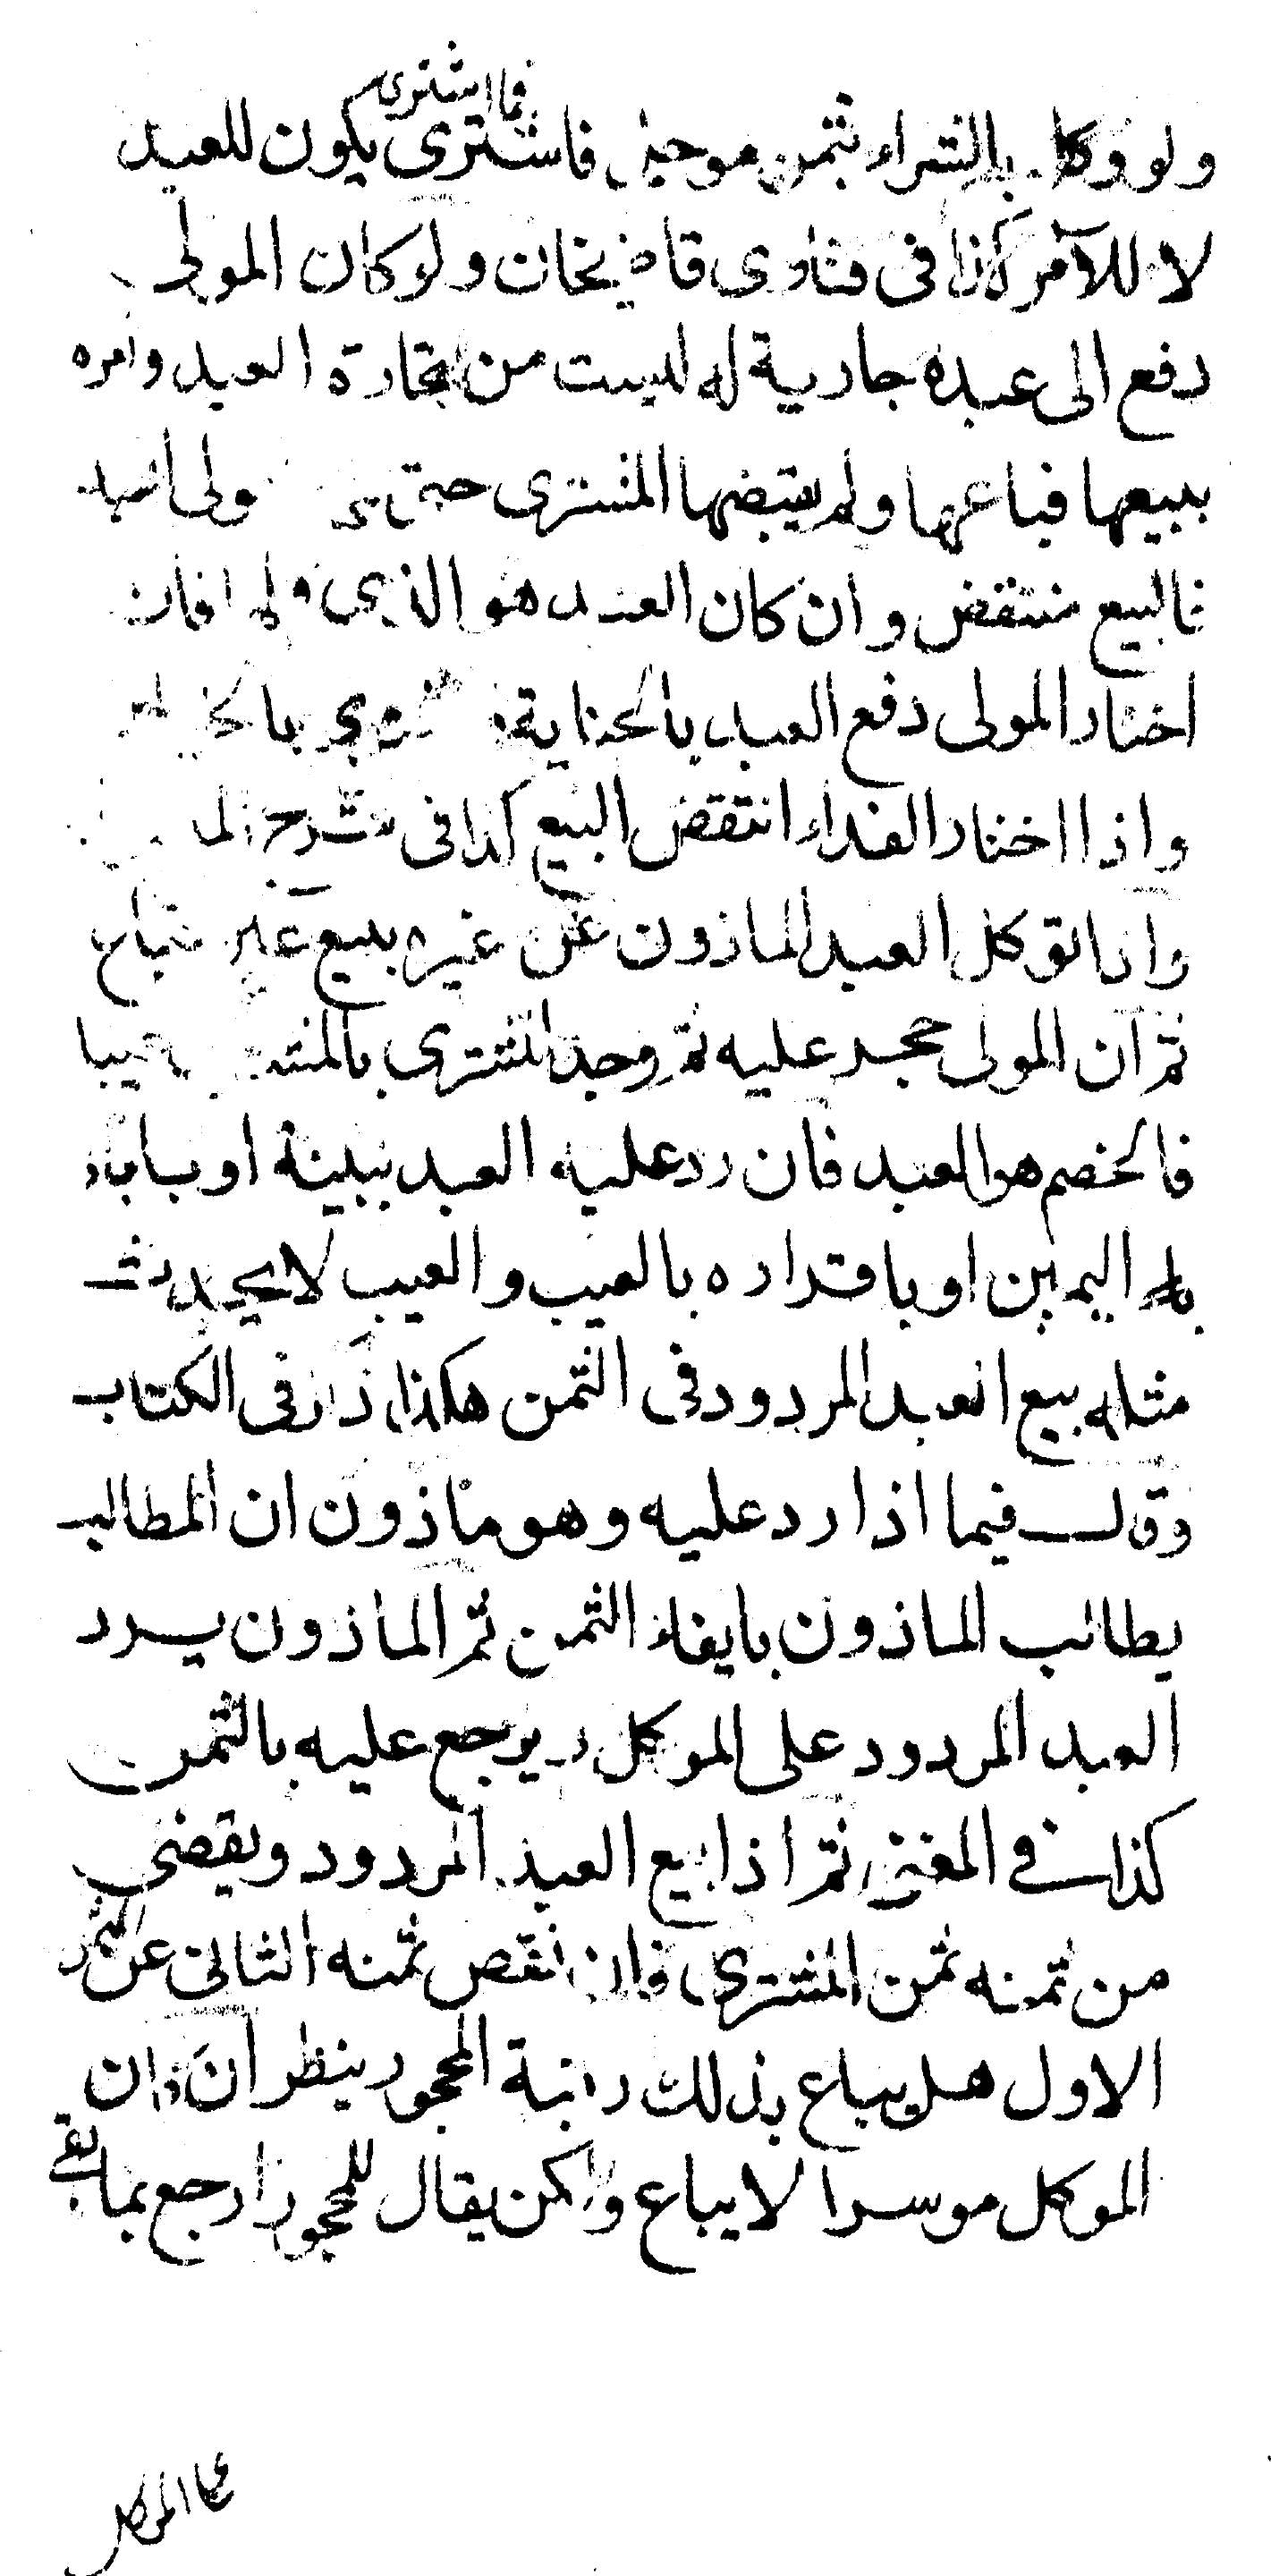 فما اشترى
ولو وكل بالشراء بثمن موجل فاشترى يكون للعبد
لا للآمر كذا في فتاوى قاضيخان ولو كان المولى
دفع الى عبده جارية له ليست من تجارة العبد وامره
ببيعها فباعها ولم يقبضها المشترى حتى ولى العبد
فالبيع منتقض وان كان العبد هو الذي فان
اختار المولى دفع العبد بالجناية
واذا اختار الفداء انتقض البيع كذا فى شرح
واذا توكل العبد الماذون عن غيره ببيع
ثم ان المولى حجر عليه ثم وجد المشترى عيبا
فالخصم هو العبد فان رد عليه العبد ببينة او باباء
اليمين او باقراره بالعيب والعيب لا يحدث
مثله بيع العبد المردود في الثمن هكذا ذكر فى الكتاب
وقال فيما اذا رد عليه وهو ماذون ان المطالب
يطالب الماذون بايفاء الثمن ثم الماذون يرد
العبد المردود على الموكل ويرجع عليه بالثمن
كذا في المغني ثم اذا بيع العبد المردود ويقضى
من ثمنه ثمن المشترى فان نقص ثمنه الثانى عن الثمن
الاول هل يباع بذلك رقبة المحجور ينظر ان كان
الموكل موسرا لا يباع ولكن يقال للمحجور ارجع بما بقي
على الموكل